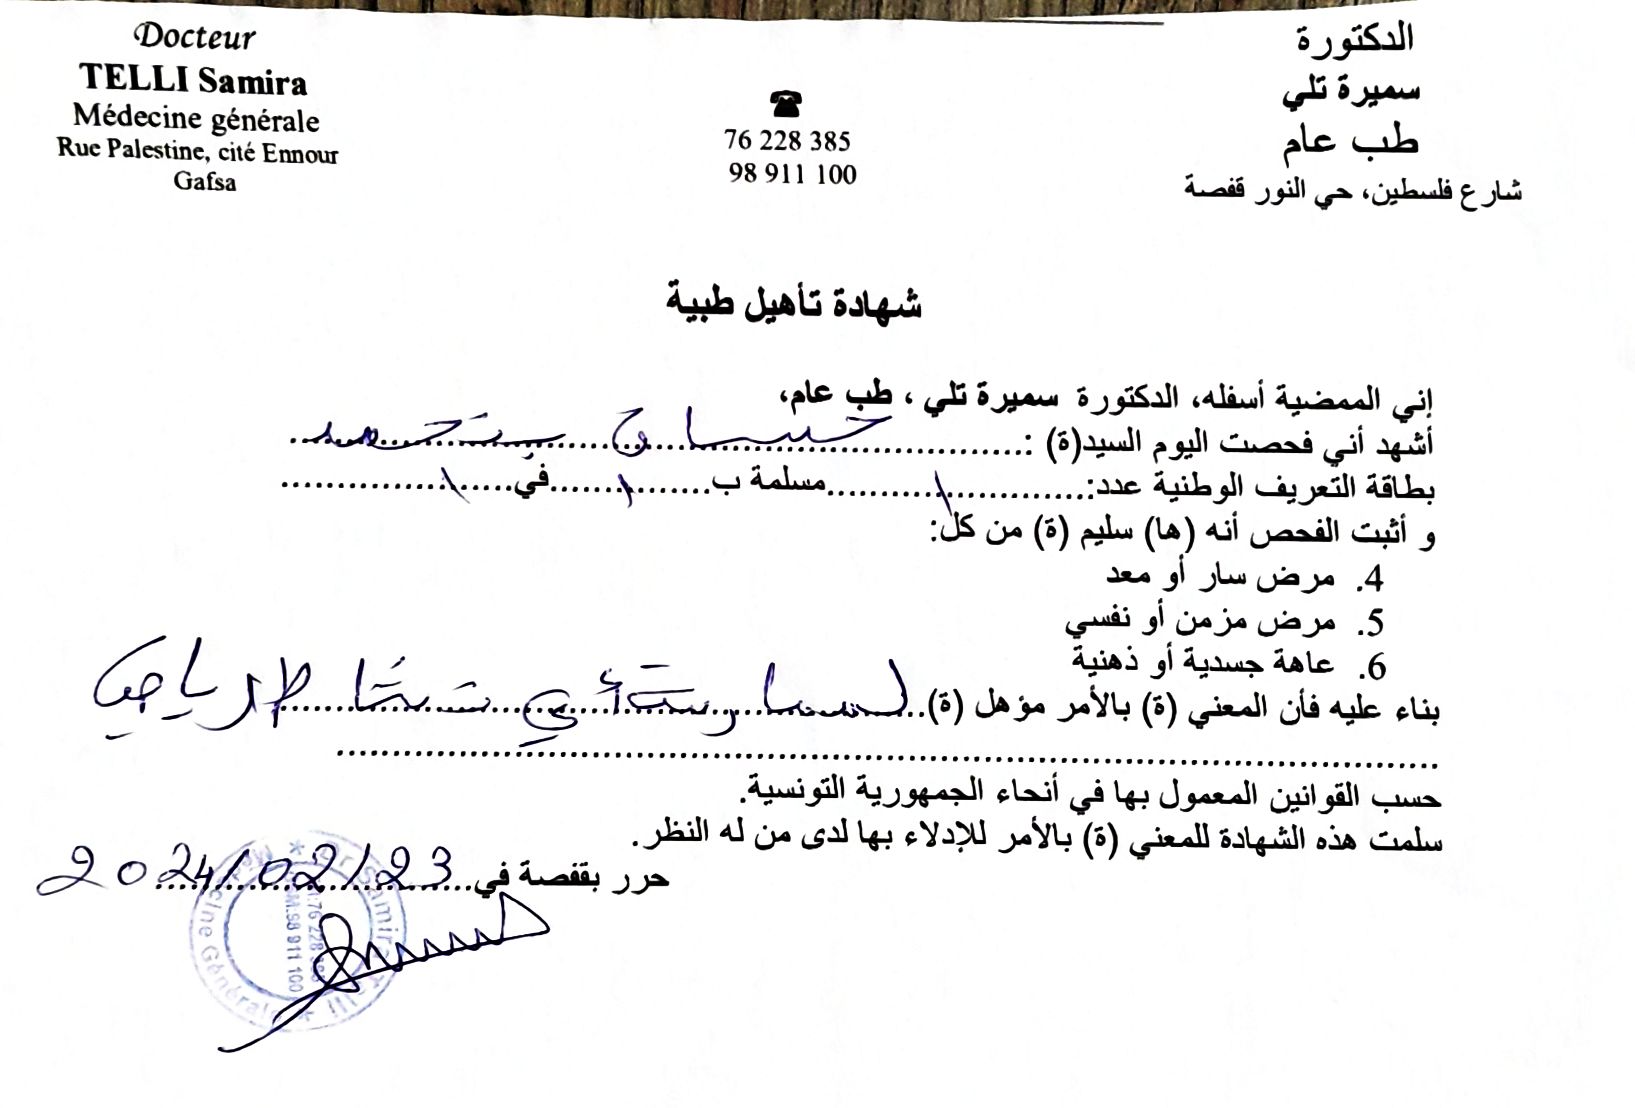 Docteur
TELLI Samira
Médecine générale
Rue Palestine, cité Ennour
Gafsa
76 228 385
98 911 100
الدكتورة
سميرة تلي
طب عام
شارع فلسطين، حي النور قفصة
شهادة تأهيل طبية
إني الممضية أسفله، الدكتورة سميرة تلي ، طب عام،
أشهد أني فحصت اليوم السيد(ة) :
بطاقة التعريف الوطنية عدد:....................\....................مسلمة ب............\............في............\............
و أثبت الفحص أنه (ها) سليم (ة) من كل:
4. مرض سار أو معد
5. مرض مزمن أو نفسي
6. عاهة جسدية أو ذهنية
بناء عليه فأن المعني (ة) بالأمر مؤهل (ة) لممارسة أي نشاط رياضي
حسب القوانين المعمول بها في أنحاء الجمهورية التونسية.
سلمت هذه الشهادة للمعني (ة) بالأمر للإدلاء بها لدى من له النظر.
حرر بقفصة في 2024/02/23
Dr Samira Telli * Médecine Générale *